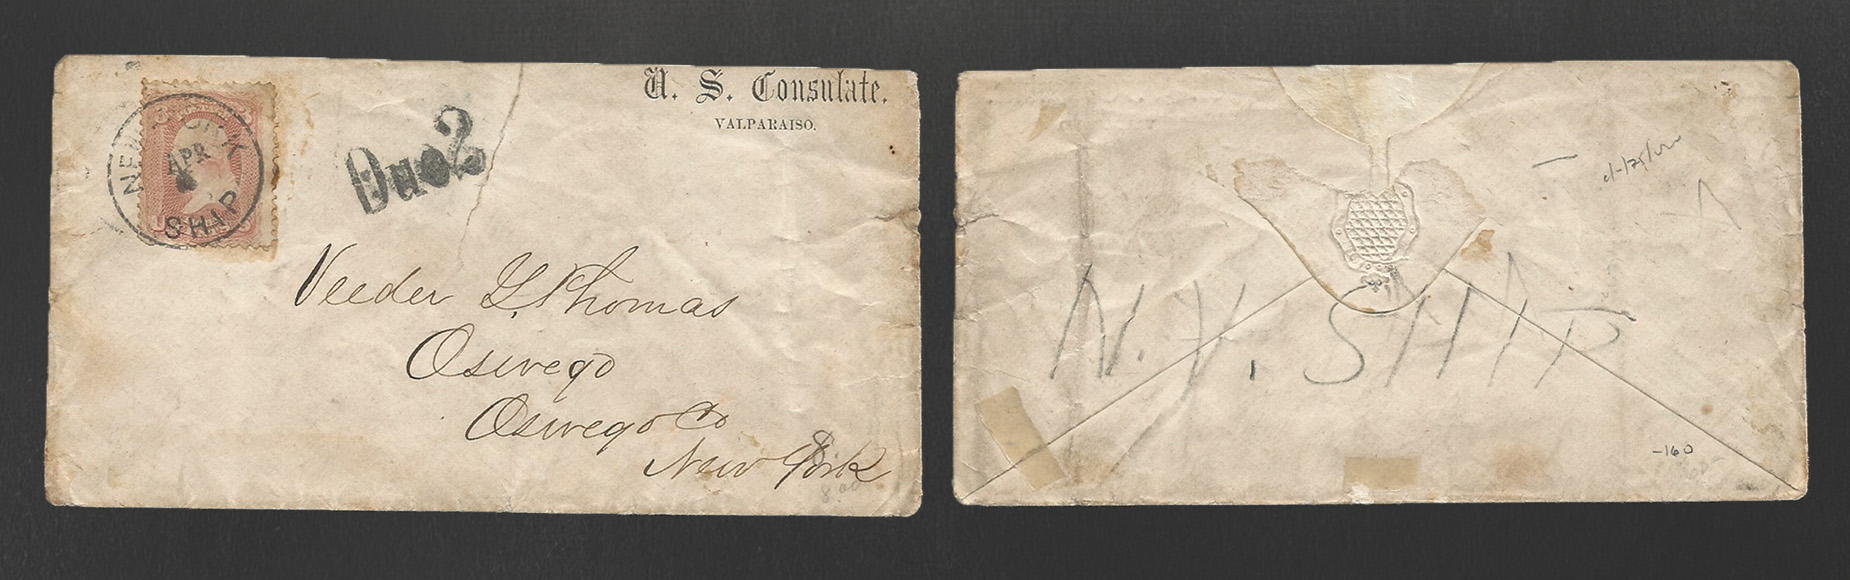 U. S. Consulate.
VALPARAISO.
NEW YORK
APR
SHIP
Due 2
Veeder G. Thomas
Oswego
Oswego Co
New York
8.00
N.Y. SHIP
-160